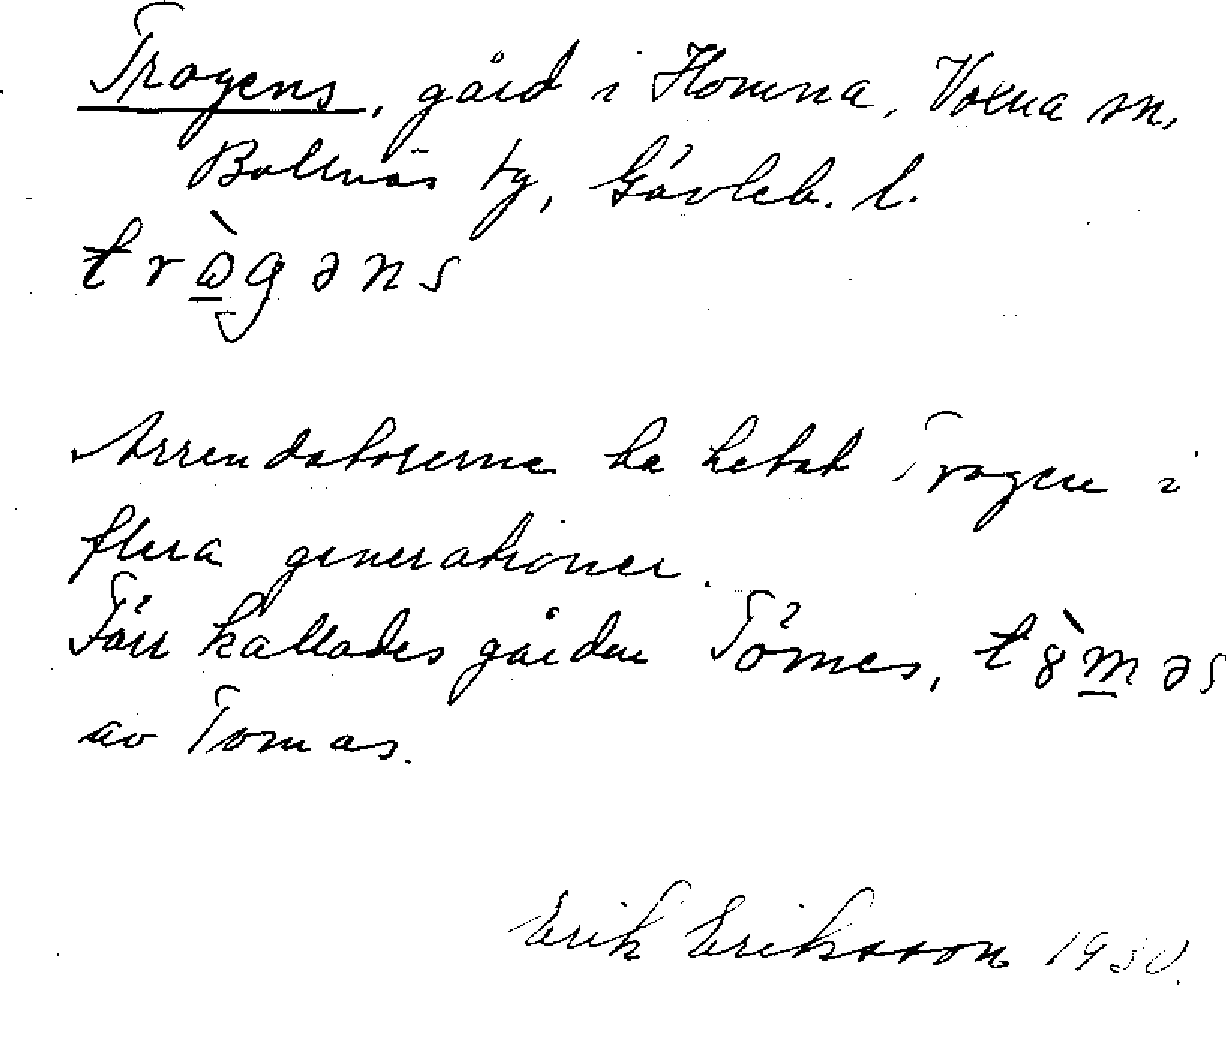 Trogens, gård i Homna, Voxna sn,
Bollnäs tg, Gävleb. l.
trògəns
Arrendatorerna ha hetat Trogen i
flera generationer.
Förr kallades gården Tömes, töməs
av Tomas.
Erik Eriksson 1930.